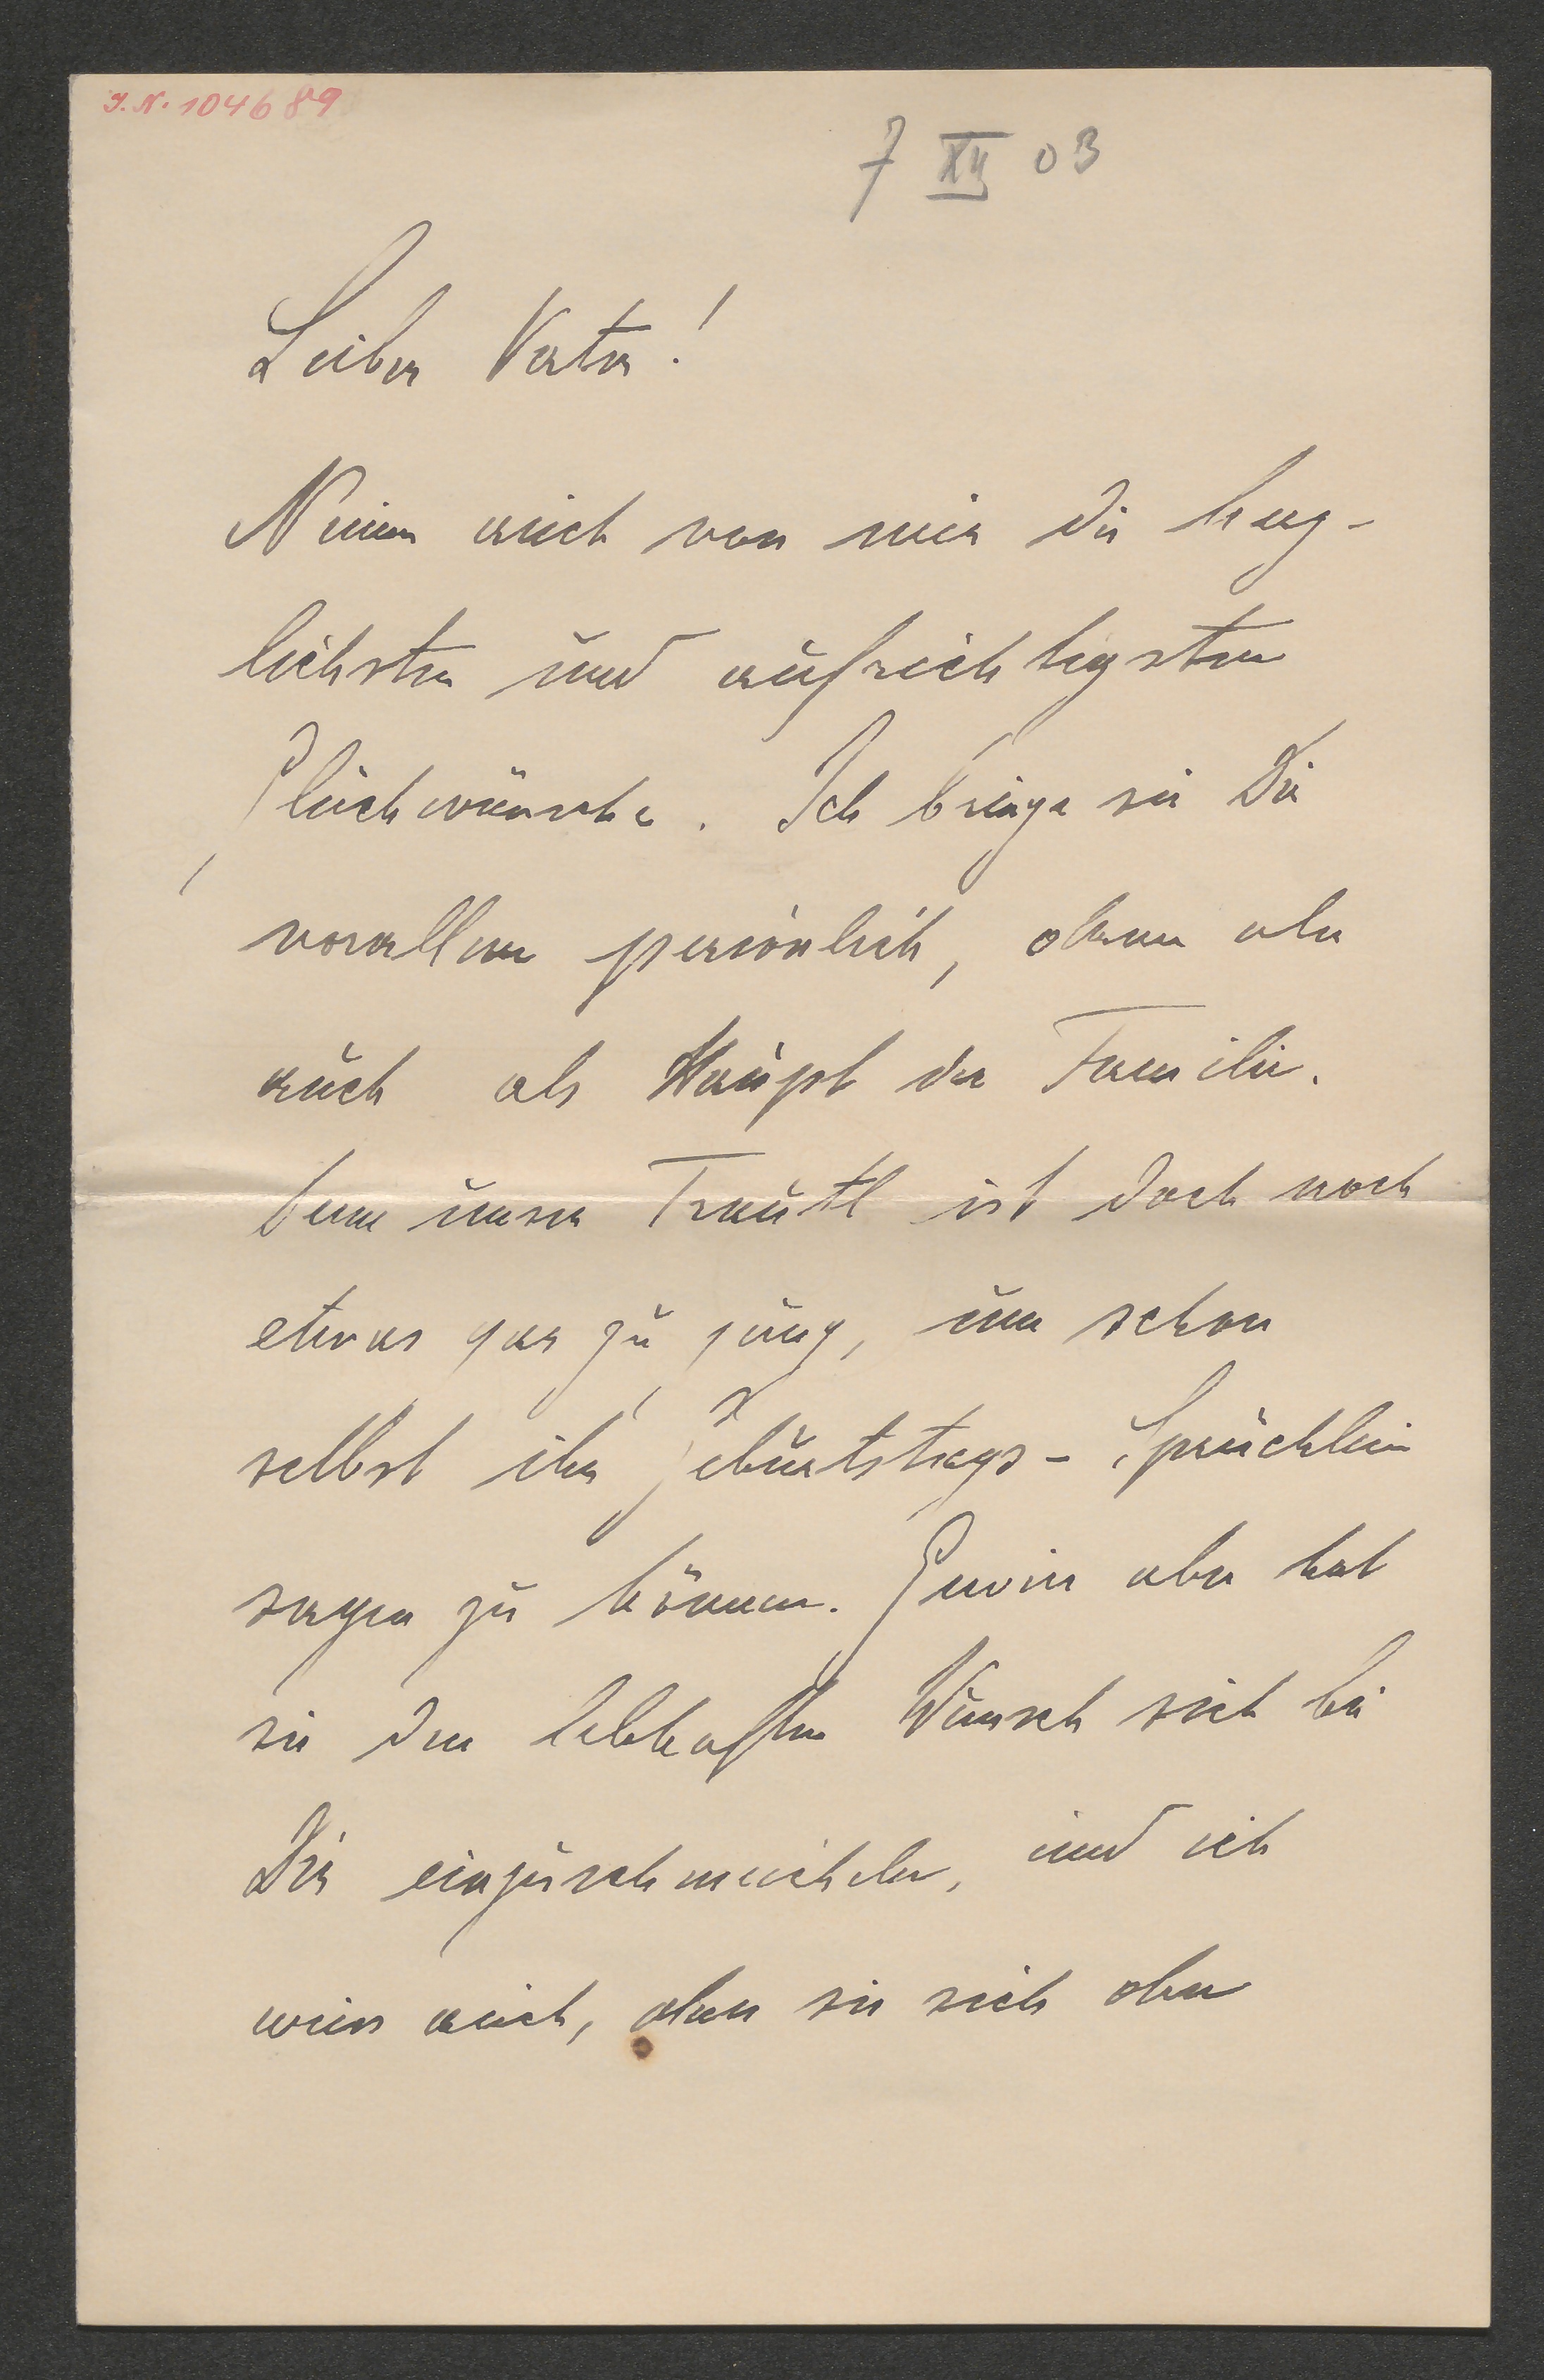 J. N. 104689
7 XII 03
Lieber Vater!
Nimm auch von mir die herz-
lichsten und aufrichtigsten
Glückwünsche. Ich bringe sie Dir
vorallem persönlich, dann aber
auch als Haupt der Familie.
Denn unsere Trautl ist doch noch
etwas gar zu jung, um schon
selbst ihr Geburtstags-Sprüchlein
sagen zu können. Gewiss aber hat
sie den lebhaften Wunsch sich bei
Dir einzuschmeicheln, und ich
weiss auch, dass sie sich aber